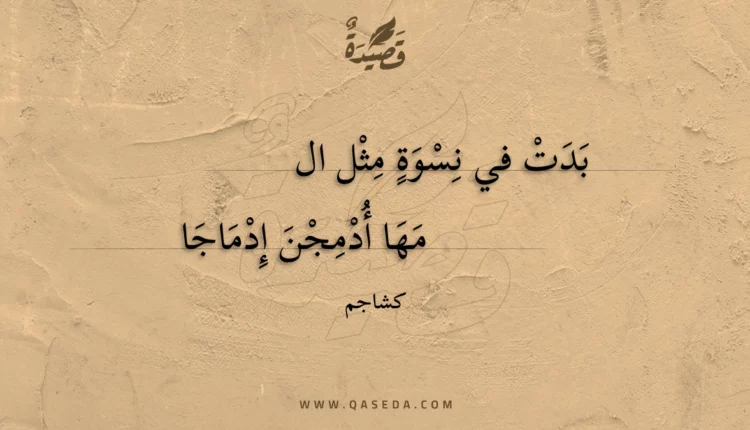 قَصِيدَةٌ
بَدَتْ في نِسْوَةٍ مِثْل ال
مَهَا أُدْمِجْنَ إِدْمَاجَا
كشاجم
WWW.QASEDA.COM